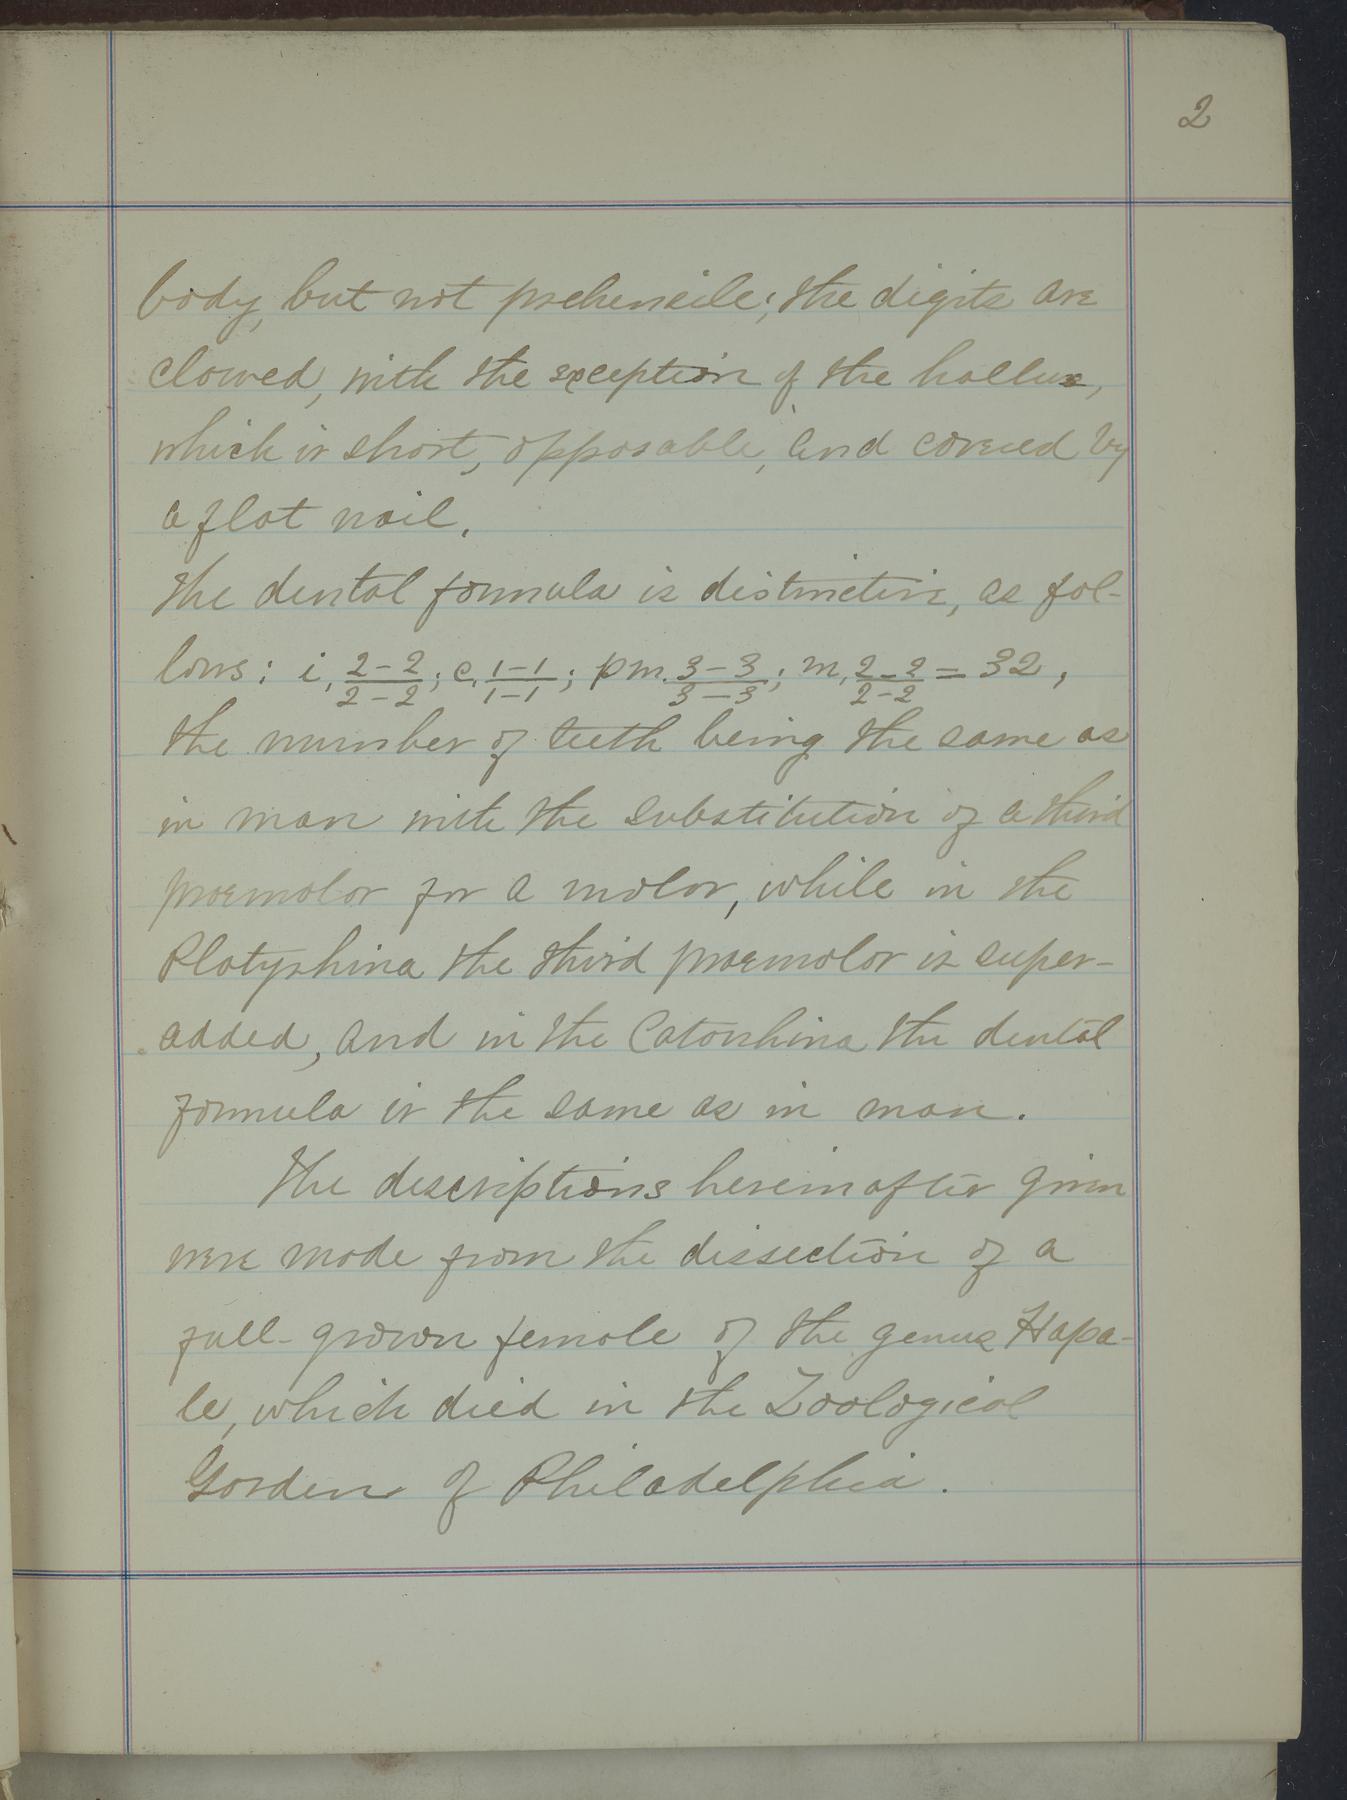 2
body, but not prehensile; the digits are
clawed, with the exception of the hallux,
which is short, opposable, and covered by
a flat nail.
The dental formula is distinctive, as fol-
lows: i. 2-2/2-2; c. 1-1/1-1; pm. 3-3/3-3; m. 2-2/2-2 = 32,
the number of teeth being the same as
in man with the substitution of a third
praemolar for a molar, while in the
Platyrhina the third praemolar is super-
added, and in the Catarrhina the dental
formula is the same as in man.
The descriptions hereinafter given
were made from the dissection of a
full-grown female of the genus Hapa-
le, which died in the Zoological
Garden of Philadelphia.